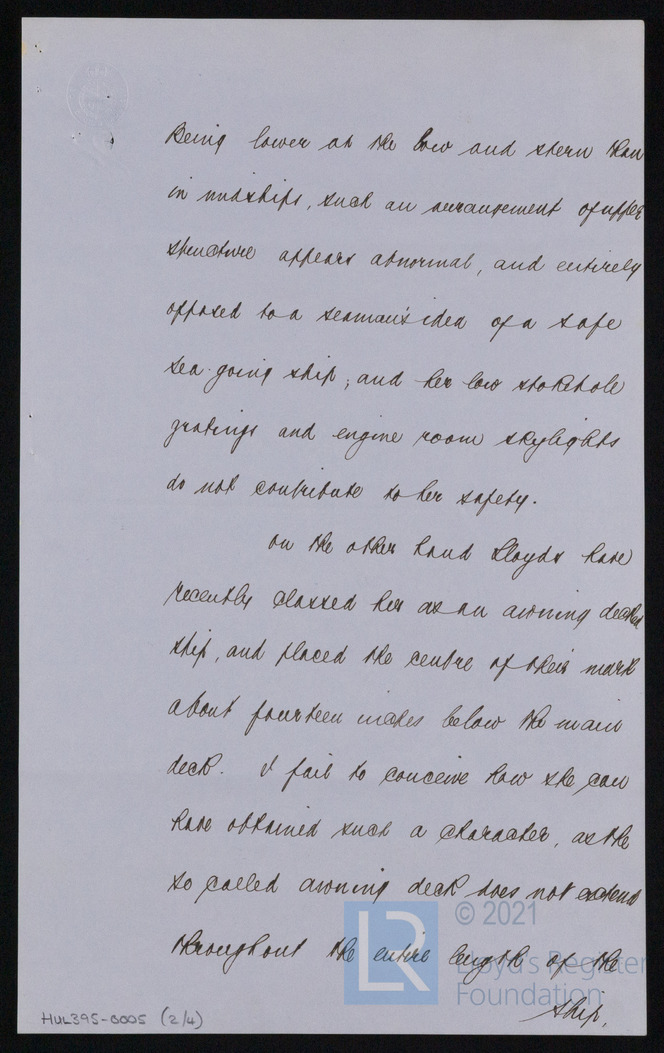 Being lower at the bow and stern than
in midships, such an arrangement of upper
structure appears abnormal, and entirely
opposed to a seaman's idea of a safe
sea-going ship; and her low stokehole
gratings and engine room skylights
do not contribute to her safety.
On the other hand Lloyds have
recently classed her as an awning decked
ship, and placed the centre of their mark
about fourteen inches below the main
deck. I fail to conceive how she can
have obtained such a character, as the
so called awning deck does not extend
throughout the entire length of the
ship.
HUL395-0005 (2/4)
LR © 2021
Lloyd's Register
Foundation